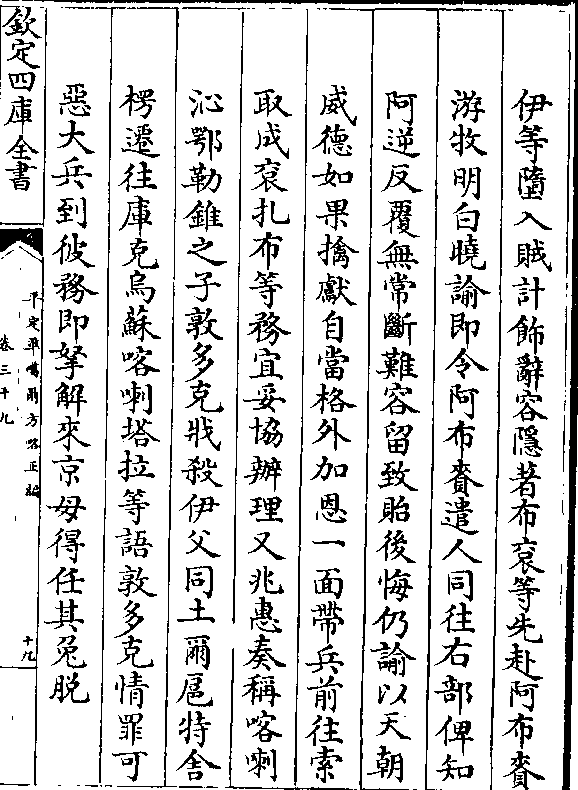 伊等墮入賊計飾辭容隱著布袞等先赴阿布賚
游牧明白曉諭即令阿布賚遣人同往右部俾知
阿逆反覆無常斷難容留致貽後悔仍諭以天朝
威德如果擒獻自當格外加恩一面帶兵前往索
取成袞扎布等務宜妥協辦理又兆惠奏稱喀喇
沁鄂勒錐之子敦多克戕殺伊父同土爾扈特舍
楞遷往庫克烏蘇喀喇塔拉等語敦多克情罪可
惡大兵到彼務即拏解來京毋得任其兔脱
欽定四庫全書
平定準噶爾方略正編
卷三十九
十九